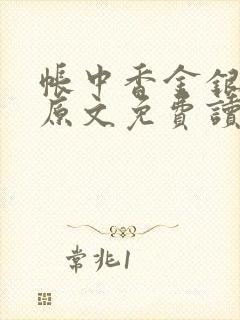 帳中香金銀
原文免費讀
常兆1